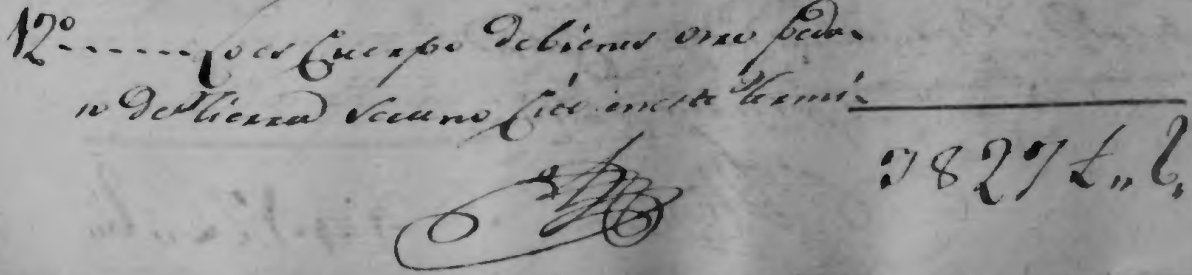 12º ------ Es Cuerpo debienes otro peda-
zo detierra secano Citi eneste termi-
7827 £ ,, l ,,